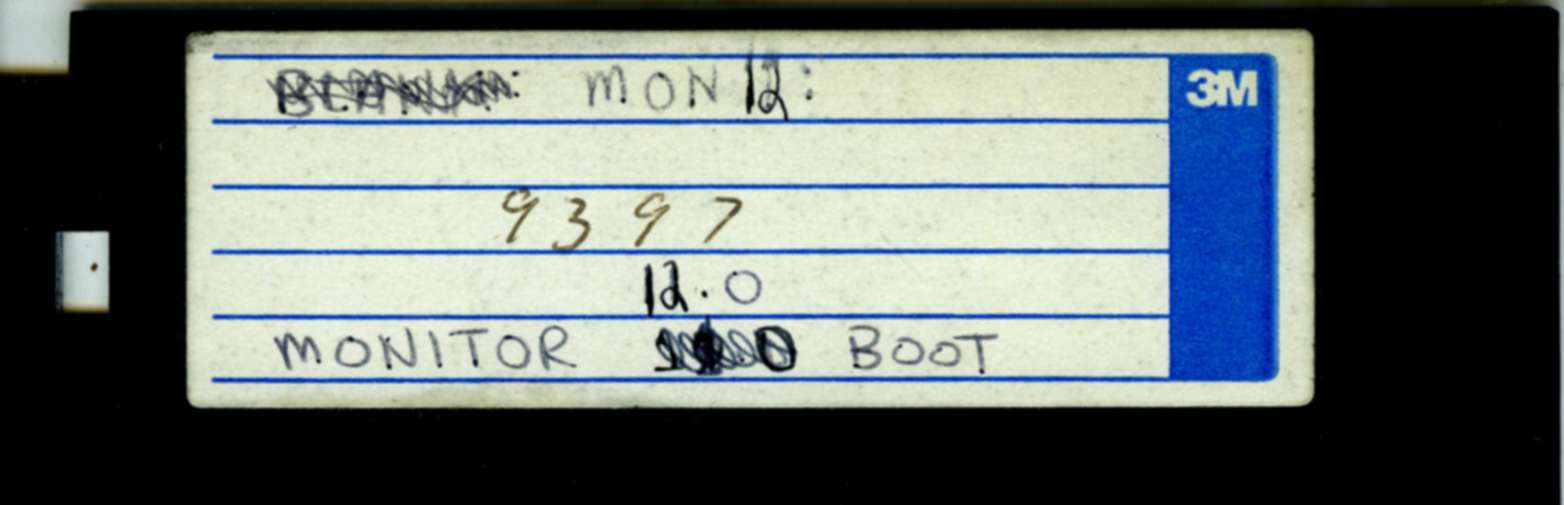 MON 12:
3M
9397
12.0
MONITOR BOOT